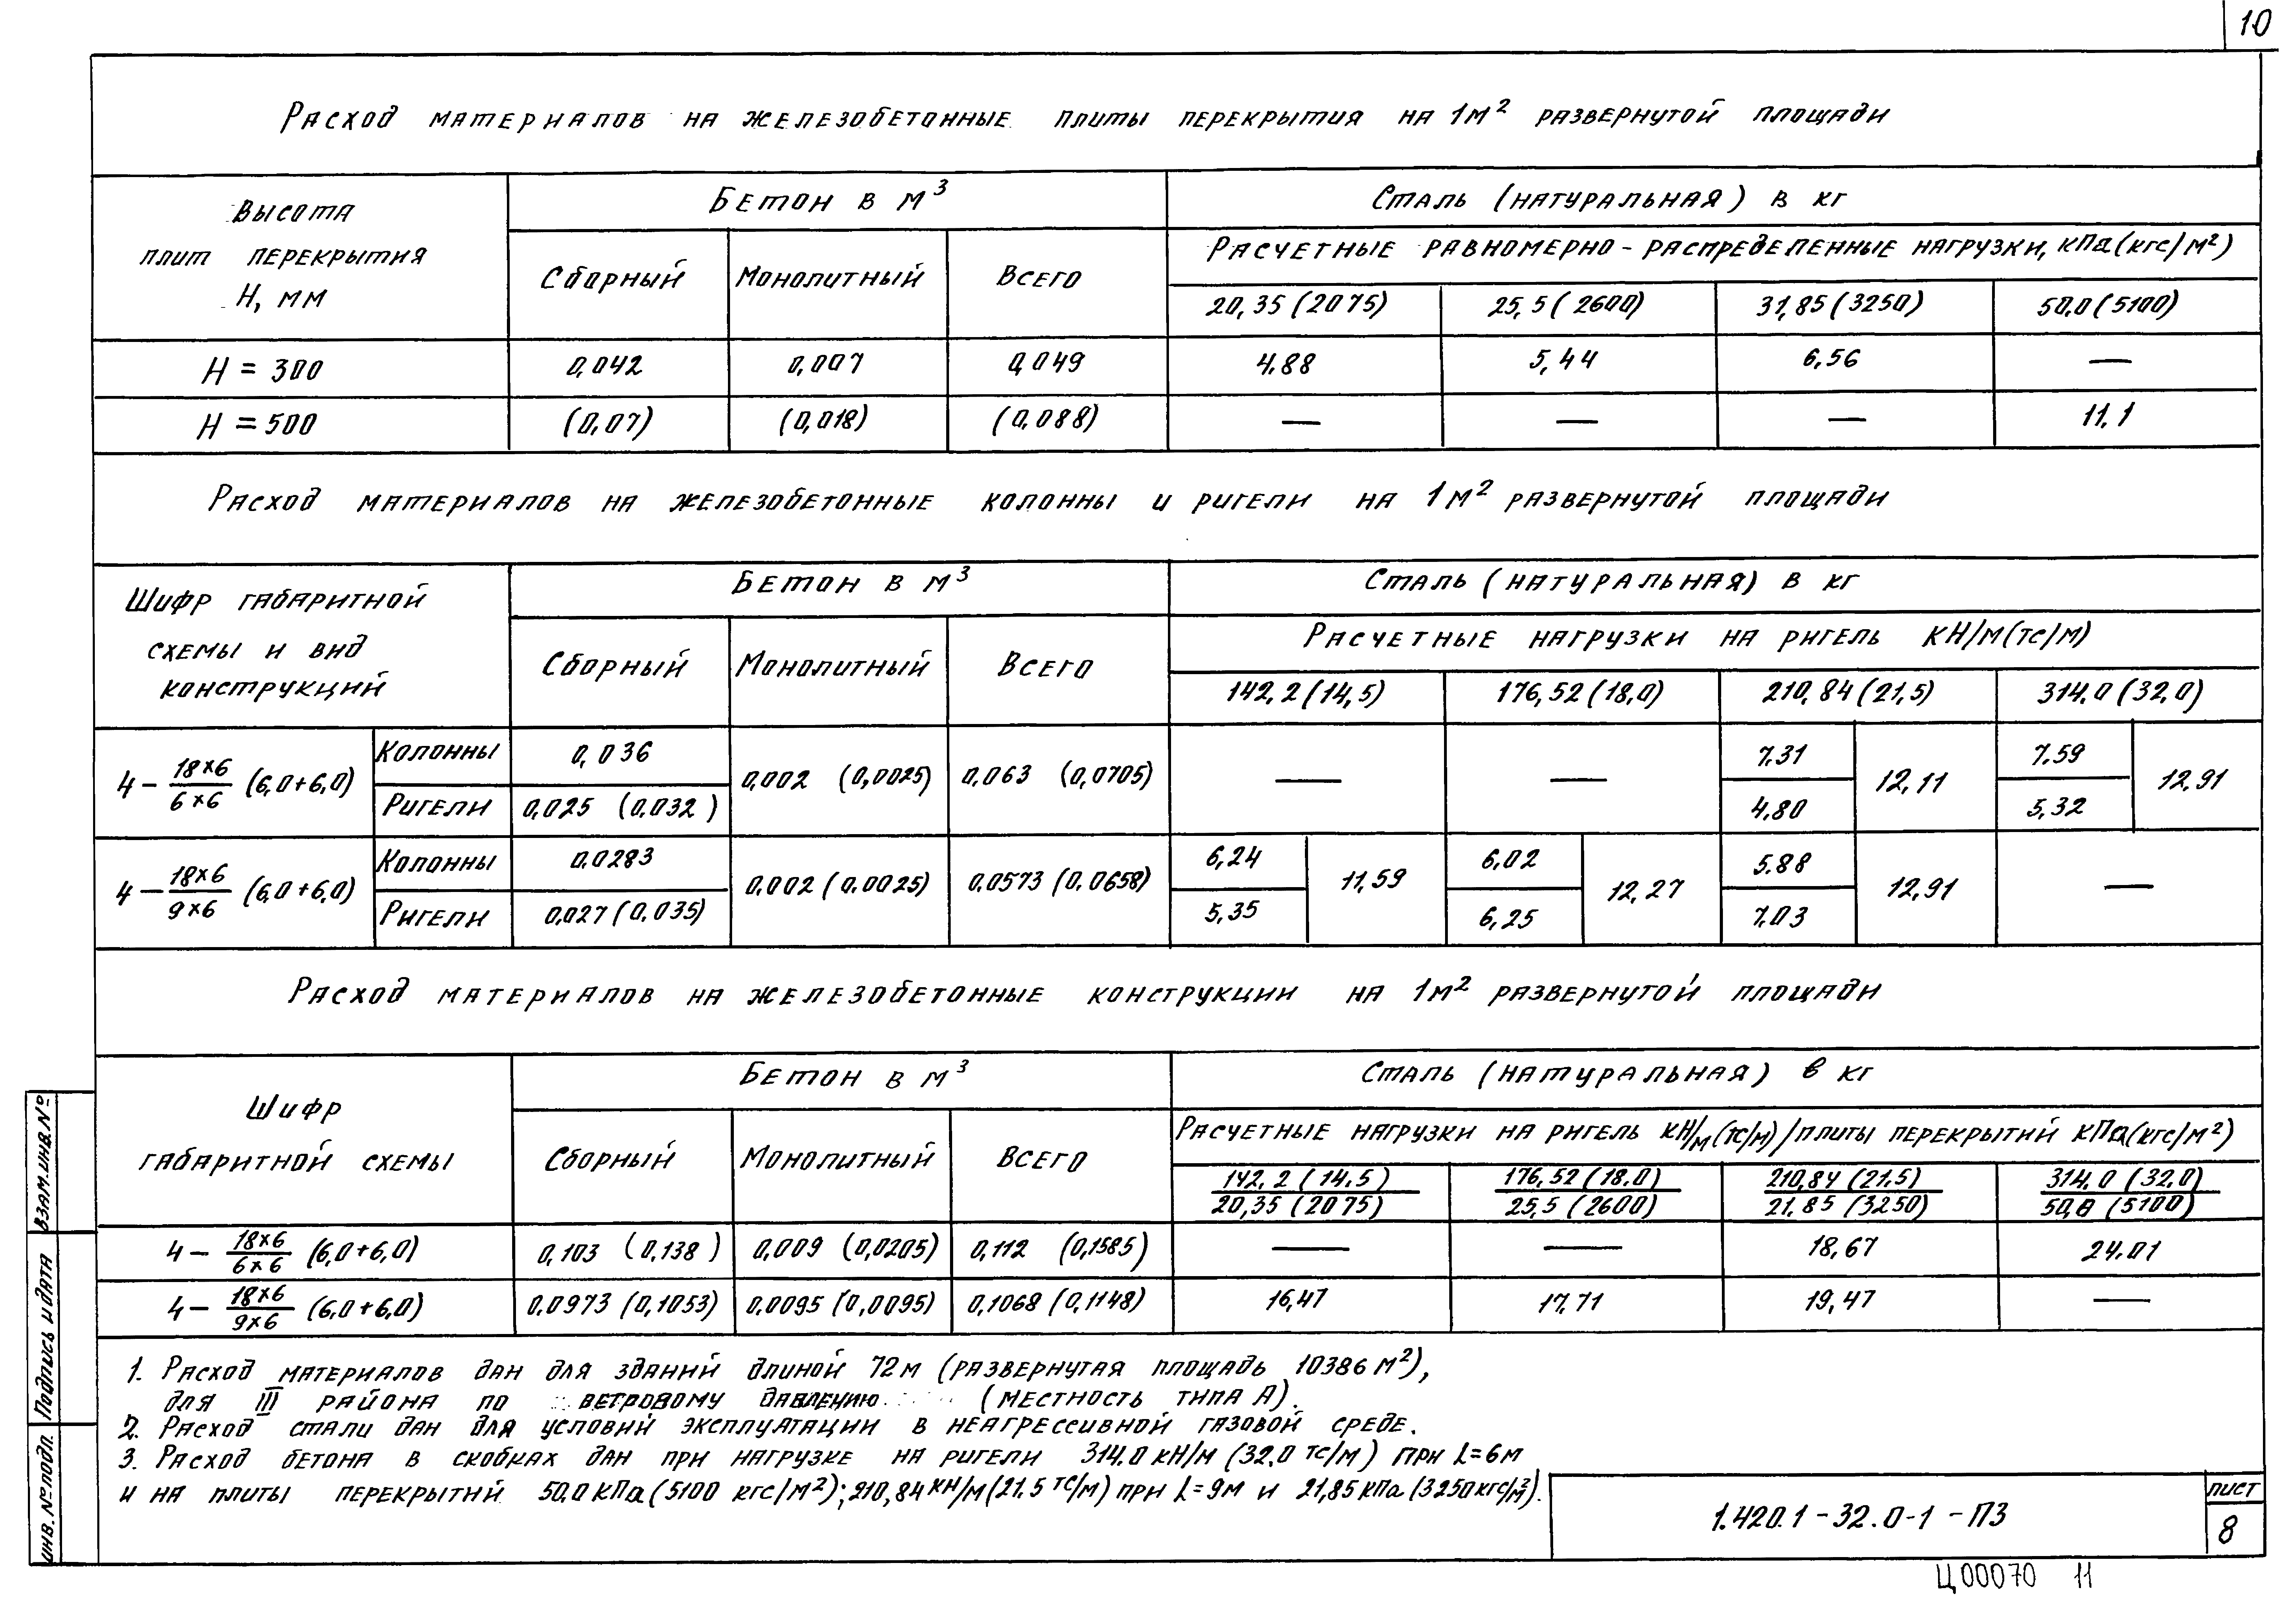 10
Расход материалов на железобетонные плиты перекрытия на 1м² развернутой площади
Высота плит перекрытия Н, мм
Бетон в м³
Сталь (натуральная) в кг
Сборный Монолитный Всего
Расчетные равномерно-распределенные нагрузки, кПа (кгс/м²)
20,35 (2075) 25,5 (2600) 31,85 (3250) 50,0 (5100)
Н = 300 0,042 0,007 0,049 4.88 5,44 6,56 —
Н = 500 (0,07) (0,018) (0,088) — — — 11,1
Расход материалов на железобетонные колонны и ригели на 1м² развернутой площади
Шифр габаритной схемы и вид конструкций
Бетон в м³
Сталь (натуральная) в кг
Сборный Монолитный Всего
Расчетные нагрузки на ригель кН/м (тс/м)
142,2 (14,5) 176,52 (18,0) 210,84 (21,5) 314,0 (32,0)
4 – 18×6/6×6 (6,0+6,0)
Колонны 0,036
Ригели 0,025 (0,032)
0,002 (0,0025) 0,063 (0,0705) — —
7.31
4.80
12,11
7.59
5,32
12,91
4 – 18×6/9×6 (6,0+6,0)
Колонны 0,0283
Ригели 0,027 (0,035)
0,002 (0,0025) 0,0573 (0,0658)
6,24
5,35
11,59
6,02
6,25
12,27
5.88
7.03
12,91
—
Расход материалов на железобетонные конструкции на 1м² развернутой площади
Шифр габаритной схемы
Бетон в м³
Сталь (натуральная) в кг
Сборный Монолитный Всего
Расчетные нагрузки на ригель кН/м (тс/м) / плиты перекрытий кПа (кгс/м²)
142,2 (14,5) 176,52 (18.0) 210,84 (21,5) 314,0 (32,0)
20,35 (2075) 25,5 (2600) 21.85 (3250) 50,0 (5100)
4 – 18×6/6×6 (6,0+6,0) 0,103 (0,138) 0,009 (0,0205) 0,112 (0,1585) — — 18,67 24.01
4 – 18×6/9×6 (6,0+6,0) 0,0973 (0,1053) 0,0095 (0,0095) 0,1068 (0,1148) 16,47 17,71 19,47 —
1. Расход материалов дан для зданий длиной 72м (развернутая площадь 10386 м²),
для III района по ветровому давлению (местность типа А).
2. Расход стали дан для условий эксплуатации в неагрессивной газовой среде.
3. Расход бетона в скобках дан при нагрузке на ригели 314.0 кН/м (32.0 тс/м) при L=6м
и на плиты перекрытий 50,0 кПа (5100 кгс/м²); 210,84 кН/м (21.5 тс/м) при L=9м и 21,85 кПа (3250 кгс/м²).
1.420.1-32.0-1-ПЗ
лист
8
Ц00070 11
Взам.инв.№
Подпись и дата
Инв.№ подл.